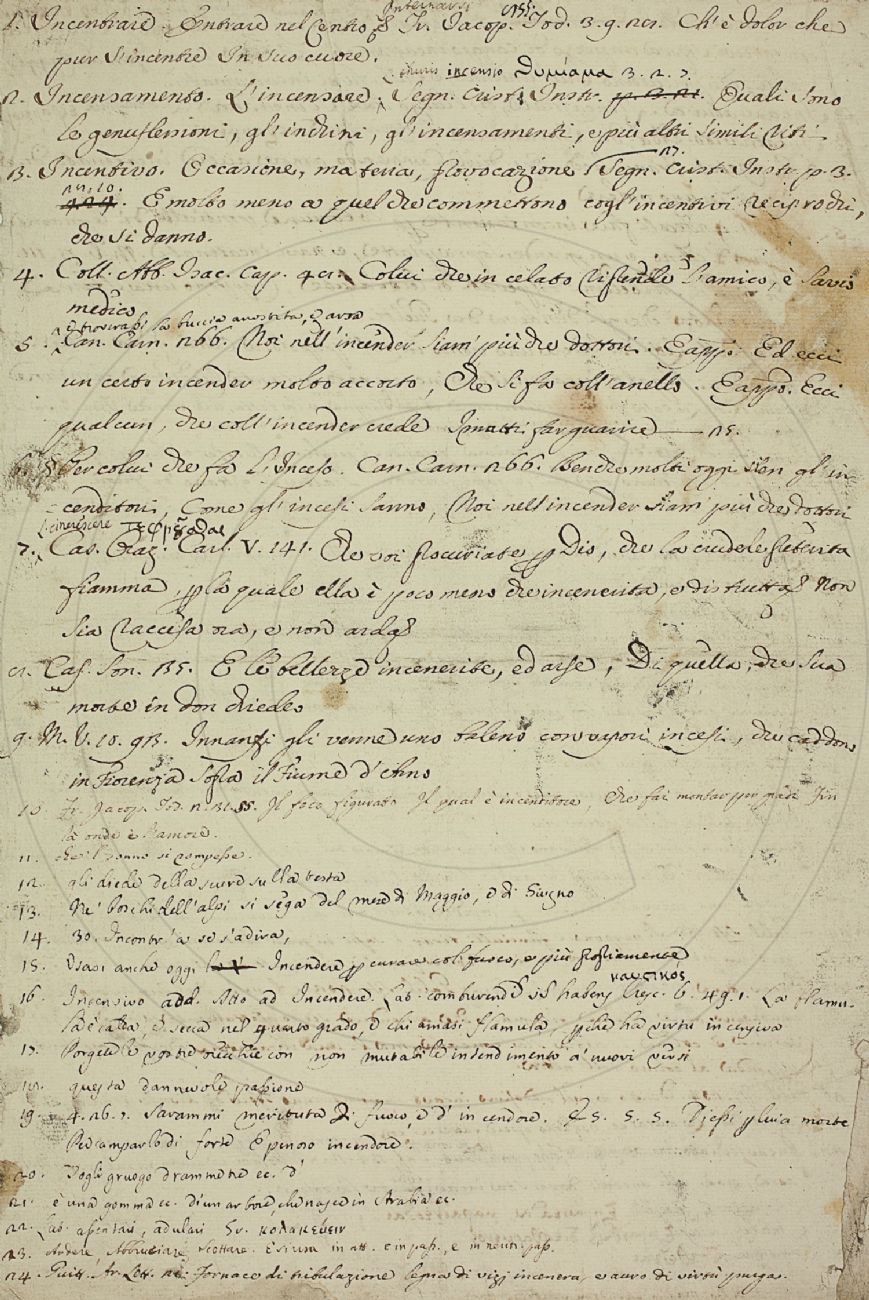 Internarsi
1. Incentrare. Entrare nel Centro Fr. Jacop. Tod. 3. 9. 21. Ch'è dolor che
pur s'incentre In suo cuore.
thuris incensio θυμίαμα 3. 2. 7.
2. Incensamento. L'incensare. Segn. Crist. Instr. Quali sono
le genuflessioni, gl'inchini, gl'incensamenti, e più altri simili riti
3. Incentivo. Occasione, materia, provocazione Segn. Crist. Instr. p. 3.
21. 10. E molto meno a quel che commettono cogl'incentivi reciprochi,
che si danno.
4. Coll. Abb. Isac. cap. 41. Colui che in celato riprende l'amico, è savio
medico
e troverassi la buccia arrostita, e arsa
5. Can. Carn. 266. Noi nell'incender siam' più che dottori. E app. Ed ecci
un certo incender molto accorto, Che si fa coll'anello. E appo. Ecci
qualcun, che coll'incender crede I matti far guarire — 15.
6. Per colui che fa l'Inceso. Can. Carn. 266. Benchè molti oggi sien gl'in-
cenditori, Come gl'incesi sanno, Noi nell'incender siam' più che dottori
cinerescere τεφρȣ̃σθαι
7. Cas. Oraz. Carl. V. 141. Che voi procuriate Dio, che la crudele preterita
fiamma, la quale ella è poco meno che incenerita, e distrutta Non
sia raccesa ora, e non arda
Cas. Son. 35. E le bellezze incenerite, ed arse, Di quella, che sua
morte in don chiede
9. M. V. 10. 93. Innanzi gli venne uno baleno con vapori incesi, che caddono
in Fiorenza sopra il Fiume d'Arno
10. Fr. Jacop. Tod. Il foco figurato Il qual è incenditore, Che fai montar per gradi Fin
là onde è l'amore.
11. che 'l sonno si rompesse.
12. gli diede della scure sulla testa
13. Ne' boschi dell'alpi si sega del mese di Maggio, e di Giugno
14. 30. Incontr'a se s'adira,
15. Usasi anche oggi Incendere curare col fuoco, e più propriamente
καυστικός
16. Incensivo add. Atto ad Incendere. Lat. comburendi vis habens Cresc. 6. 49. 1. La flamu-
la è calda, e secca nel quarto grado, e chiamasi flamula, perchè ha virtù incensiva
17. Porgete le vostre orecchie con non mutabile intendimento a' nuovi versi
18. questa dannevole passione
19. 4. 26. 7. Sarammi merituta Di fuoco, e d'incendore. E 5. 5. 5. Diessi la morte
Per camparlo di forte E penoso incendore.
20. Togli gruogo dramme tre ec. d'
21. è una gomma ec. d'un arbore, che nasce in Arabia ec.
22. Lat. assentari, adulari Gr. κολακεύειν
23. Ardere, Abbruciare, Scottare. E si usa in att. e in pass., e in neutr. pass.
24. Guitt. Ar. Lett. Fornace di tribulazione legna di vizj incenera, e auro di virtù purga.